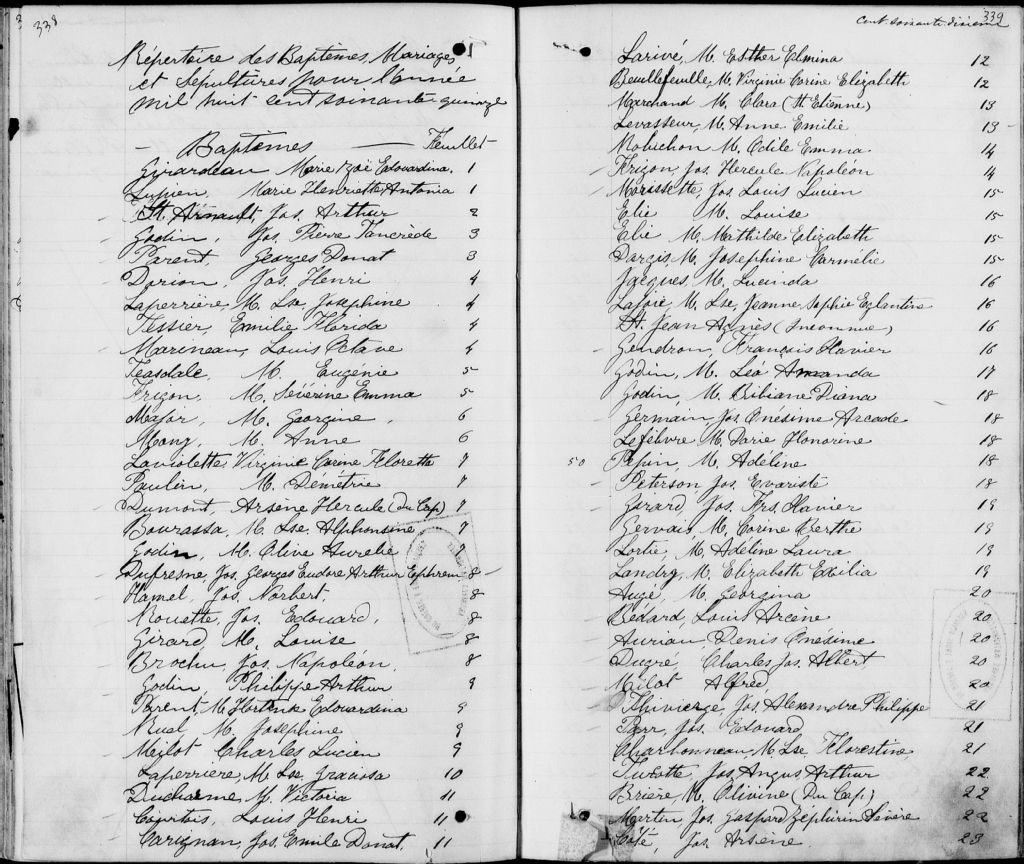 338
Répertoire des Baptêmes, Mariages,
et sépultures pour l'année
mil huit cent soixante-quinze
- Baptêmes — Feuillet
Girardeau Marie Zoë Edouardina. 1
Lupien, Marie Henriette Antonia 1
St. Arnault, Jos. Arthur 2
Godin, Jos. Pierre Tancrède 3
Parent, Georges Donat 3
Dorion, Jos. Henri 4
Laperrière M. Lse Josephine 4
Tessier, Emilie Florida 4
Marineau, Louis Octave 4
Teasdale, M. Eugenie 5
Frigon, M. Sévérine Emma 5
Major, M. Georgine, 6
Mong, M. Anne 6
Laviolette, Virginie Corine Floretta 7
Paulin, M. Demétrie 7
Dumont, Arsène Hercule (du Cap) 7
Bourassa, M. Lse Alphonsine 7
Godin, M. Olive Aurelie
Dufresne, Jos. Georges Eudore Arthur Ephrem 8
Hamel, Jos. Norbert, 8
Rouette, Jos. Edouard, 8
Girard, M. Louise 8
Brochu, Jos. Napoléon, 8
Godin, Philippe Arthur 9
Parent, M. Hortense Edouardina 9
Rual M. Josephine 9
Milot Charles Lucien 9
Laperriere, M. Lse Graciosa 10
Ducharme, M. Victoria 11
Courtois, Louis Henri 11
Carignan, Jos. Emile Donat, 11
339
Cent. soixante-dixième
Larivé, M. Esther Elmina 12
Beuillefeuille, M. Virginie Corine Elizabeth 12
Marchand M. Clara (St Etienne) 13
Levasseur, M. Anne Emilie 13
Robichon M. Odile Emma 14
Frigon, Jos. Hercule Napoléon 14
Morissette, Jos. Louis Lucien 15
Elie M. Louise 15
Elie M. Mathilde Elizabeth 15
Dargis, M. Josephine Carmelie 15
Jacques, M. Lucinda 16
Lajoie, M. Lse, Jeanne, Sophie Eglantine 16
St. Jean Agnès (Inconnue) 16
Gendron, François Xavier 16
Godin, M. Léo Amanda 17
Godin, M. Bibiane Diana 18
Germain, Jos. Onésime Arcade 18
Lefebvre, M. Darie Honorine 18
50 Pepin, M. Adéline 18
Peterson, Jos. Evariste 18
Girard, Jos. Frs. Xavier 19
Gervais, M. Corine Berthe 19
Lortie, M. Adéline Laura 19
Landry, M. Elizabeth Exilia 19
Augé, M. Georgina 20
Bédard, Louis Arcène 20
Aurian, Denis Onesime 20
Dugré, Charles Jos. Albert 20
Milot Alfred, 20
Thivierge, Jos. Alexandre Philippe 21
Parr, Jos. Edouard 21
Charbonneau, M. Lse Florestine, 21
Turcotte, Jos. Angus Arthur 22
Brière, M. Olivine (Du Cap) 22
Martin Jos. Gaspard Zéphirin Sévère 22
Côté, Jos. Arsène 23